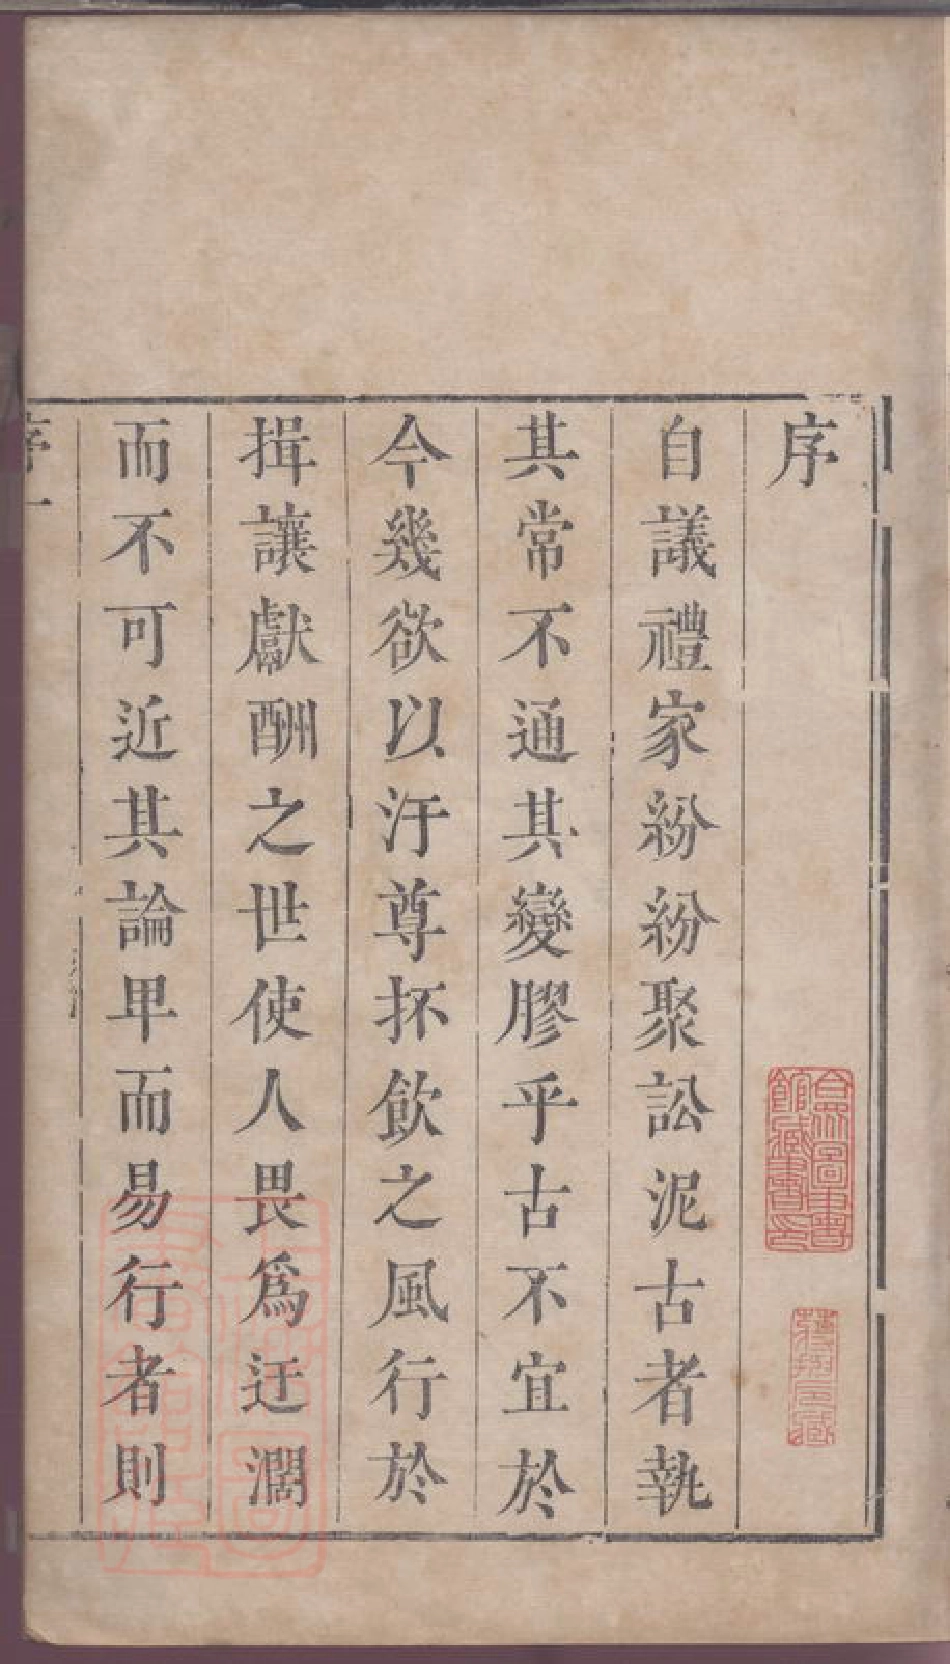 序
自議禮家紛紛聚訟泥古者執
其常不通其變膠乎古不宜於
今幾欲以汙尊抔飲之風行於
揖讓獻酬之世使人畏爲迂濶
而不可近其論卑而易行者則
序一
合眾圖書館藏書印